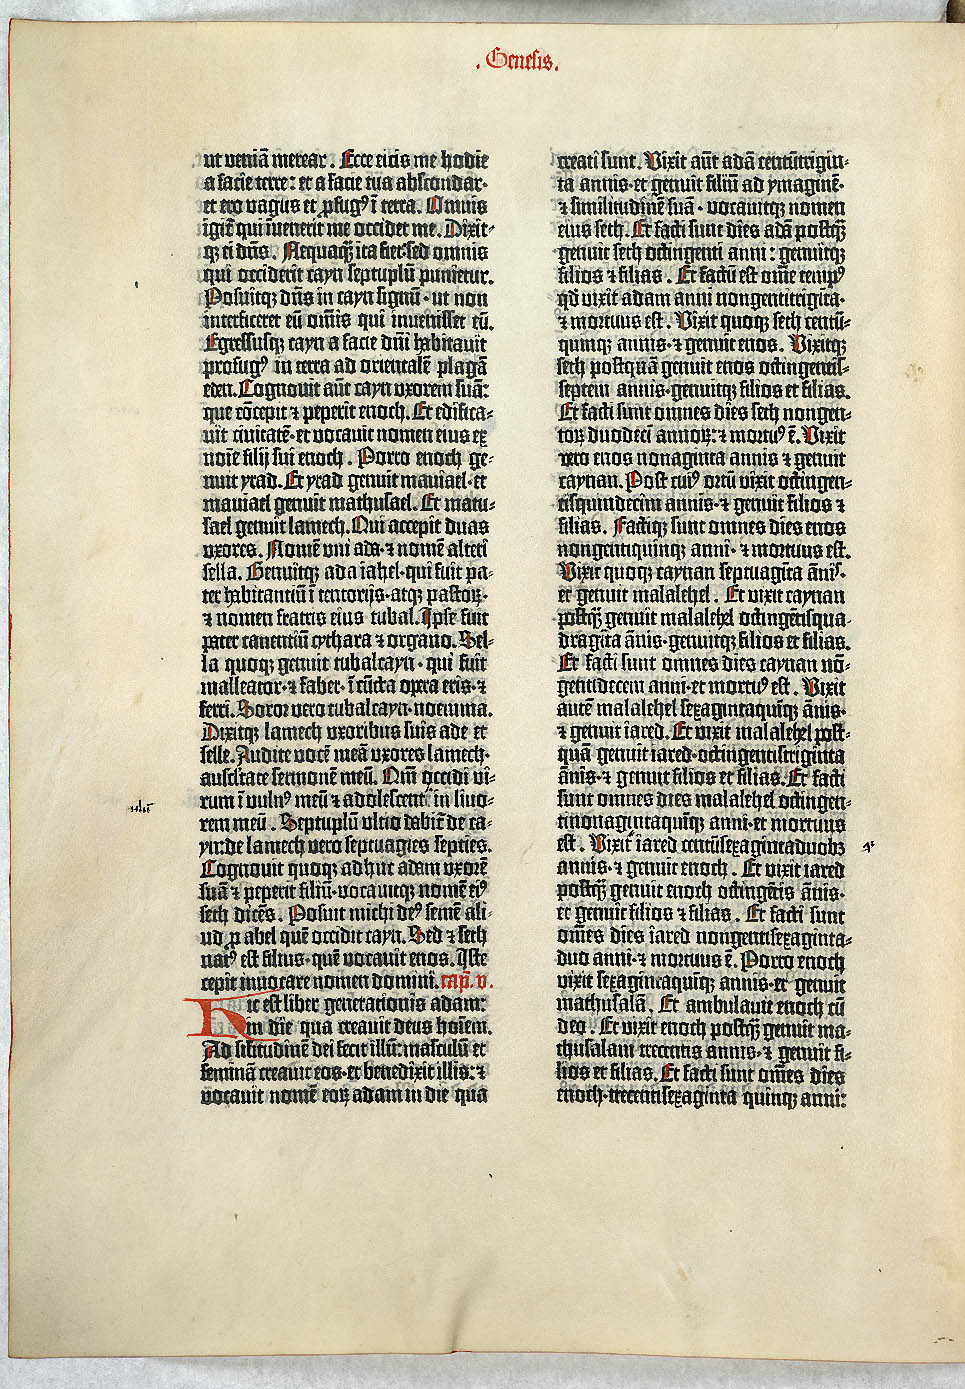 . Genesis .
ut veniā merear . Ecce eicis me hodie
a facie terre: et a facie tua abscondar·
et ero vagus et ꝓfugꝰ ī terra . Omnis
igit̄ qui īvenerit me occidet me . Dixit-
qꝫ ei dn̄s . Nequaqꝫ̄ ita fiet·sed omnis
qui occiderit cayn septuplū punietur.
Posuitqꝫ dn̄s in cayn signū· ut non
interficeret eū om̄is qui invenisset eū.
Egressusqꝫ cayn a facie dn̄i habitavit
profugꝰ in terra ad orientalē plagā
eden. Cognovit aūt cayn vxorem suā:
que cōcepit ⁊ peperit enoch. Et edifica-
vit civitatē· et vocavit nomen eius ex
noīe filij sui enoch . Porro enoch ge-
nuit yrad. Et yrad genuit maviael· et
maviael genuit mathusael. Et matu-
sael genuit lamech. Qui accepit duas
vxores . Nomē vni ada·⁊ nomē alteri
sella . Genuitqꝫ ada iahel·qui fuit pa-
ter habitantiū ī tentorijs· atqꝫ pastoꝝ·
⁊ nomen fratris eius tubal. Ipse fuit
pater canentiū cythara ⁊ organo. Sel-
la quoqꝫ genuit tubalcayn · qui fuit
malleator·⁊ faber· ī cūcta opera eris·⁊
ferri. Soror vero tubalcayn·noemma.
Dixitqꝫ lamech vxoribus suis ade et
selle. Audite vocē meā vxores lamech·
auscltate sermonē meū . Qm̄ occidi vi-
rum ī vulnꝰ meū ⁊ adolescent in livo-
rem meū . Septuplū ultio dabit̄ de ca-
yn: de lamech vero septuagies septies.
Cognovit quoqꝫ adhuc adam vxorē
suā ⁊ peperit filiū· vocavitqꝫ nomē eiꝰ
seth dicēs . Posuit michi deꝰ semē ali-
ud ꝓ abel quē occidit cayn. Sed ⁊ seth
natꝰ est filius· quē vocavit enos. Iste
cepit invocare nomen domini. cap̄. v.
Hic est liber generationis adam:
in die qua creavit deus hoīem.
Ad sil̄itudinē dei fecit illū: masculū et
feminā creavit eos· et benedixit illis: ⁊
vocavit nomē eoꝝ adam in die qua
creati sunt . Vixit aūt adā centūtrigin-
ta annis· et genuit filiū ad ymaginē·
⁊ similitudinē suā · vocavitqꝫ nomen
eius seth. Et facti sunt dies adā postqꝫ̄
genuit seth octingenti anni : genuitqꝫ
filios ⁊ filias . Et factū est om̄e tempꝰ
qd̄ vixit adam anni nongentitrigīta·
⁊ mortuus est . Vixit quoqꝫ seth centū-
quinqꝫ annis· ⁊ genuit enos . Vixitqꝫ
seth postquā genuit enos octingentis-
septem annis· genuitqꝫ filios et filias.
Et facti sunt omnes dies seth nongen-
toꝝ duodecī annoꝝ: ⁊ mortuꝰ ē. Vixit
vero enos nonaginta annis ⁊ genuit
caynan. Post cuiꝰ ortū vixit octingen-
tisquindecim annis· ⁊ genuit filios ⁊
filias . Factiqꝫ sunt omnes dies enos
nongentiquinqꝫ anni· ⁊ mortuus est.
Vixit quoqꝫ caynan septuagīta ānis·
et genuit malalehel . Et vixit caynan
postqꝫ̄ genuit malalehel octingētisqua-
dragīta ānis· genuitqꝫ filios et filias.
Et facti sunt omnes dies caynan nō-
gentidecem anni· et mortuꝰ est . Vixit
autē malalehel sexagintaquīqꝫ ānis·
⁊ genuit iared . Et vixit malalehel post-
quā genuit iared· octingentistriginta
ānis·⁊ genuit filios et filias. Et facti
sunt omnes dies malalehel octingen-
tinonagintaquīqꝫ anni· et mortuus
est . Vixit iared centūsexagintaduobꝫ
annis· ⁊ genuit enoch . Et vixit iared
postqꝫ̄ genuit enoch octingētis ānis·
et genuit filios ⁊ filias . Et facti sunt
om̄es dies iared nongentisexaginta-
duo anni· ⁊ mortuus ē . Porro enoch
vixit sexagintaquīqꝫ annis· et genuit
mathusalā . Et ambulavit enoch cū
deo . Et vixit enoch postqꝫ̄ genuit ma-
thusalam trecentis annis· ⁊ genuit fi-
lios et filias. Et facti sunt om̄es dies
enoch·trecentisexaginta quinqꝫ anni: